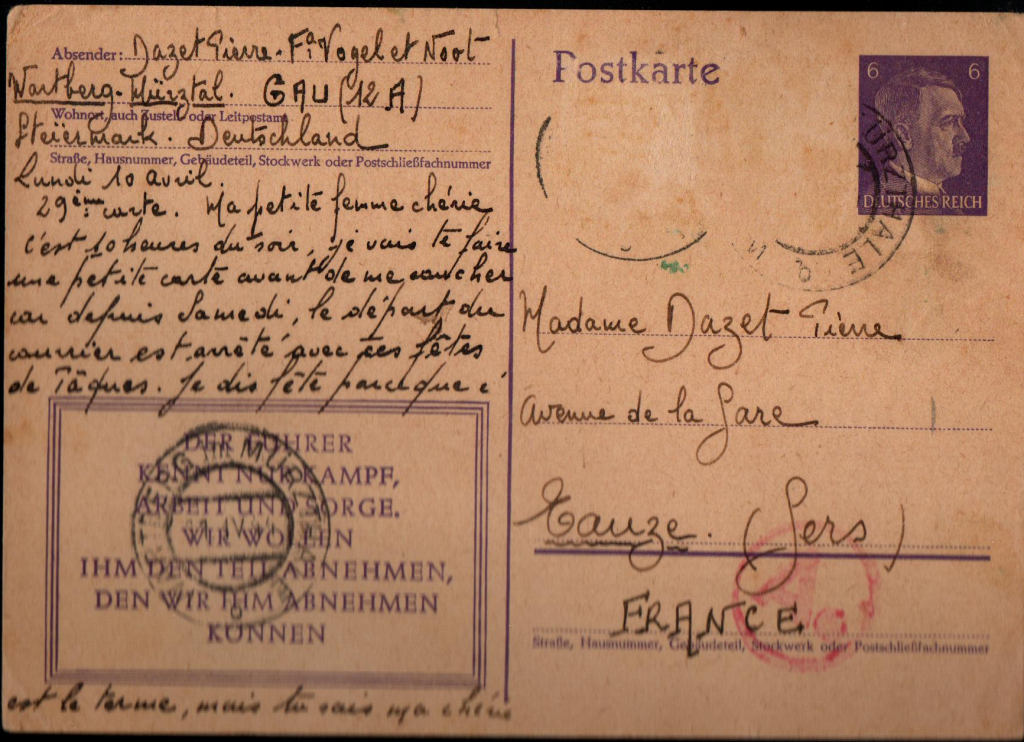 Absender: Dazet Pierre - Fa Vogel et Noot
Wartberg - Mürztal. GAU (12 A)
Wohnort, auch Zustell- oder Leitpostamt
Steiermark. Deutschland
Straße, Hausnummer, Gebäudeteil, Stockwerk oder Postschließfachnummer
Lundi 10 avril.
29ème carte. Ma petite femme chérie
c'est 10 heures du soir, je vais te faire
une petite carte avant de me coucher
car depuis Samedi, le départ du
courrier est arrêté avec ces fêtes
de Pâques. Je dis fête parceque c'
DER FÜHRER
KENNT NUR KAMPF,
ARBEIT UND SORGE.
WIR WOLLEN
IHM DEN TEIL ABNEHMEN,
DEN WIR IHM ABNEHMEN
KÖNNEN
est le terme, mais tu sais ma chérie
Postkarte
6 6
DEUTSCHES REICH
Madame Dazet Pierre
Avenue de la Gare
Eauze. (Gers)
FRANCE
Straße, Hausnummer, Gebäudeteil, Stockwerk oder Postschließfachnummer